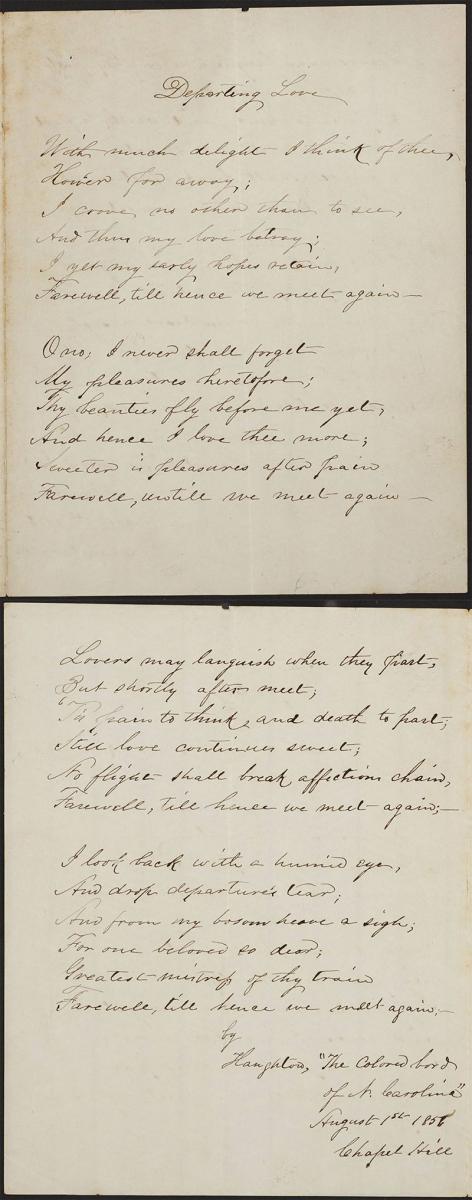 Departing Love
With much delight I think of thee,
Hower far away;
I crave no other than to see,
And thus my love betray;
I yet my early hopes retain,
Farewell, till hence we meet again —
O no; I never shall forget
My pleasures heretofore;
Thy beauties fly before me yet,
And hence I love thee more;
Sweeter is pleasures after pain
Farewell, untill we meet again —
Lovers may languish when they part,
But shortly after meet;
'Tis pain to think, and death to part;
Still love continues sweet;
No flight shall break affections chain,
Farewell, till hence we meet again; —
I look back with a humid eye,
And drop departure's tear;
And from my bosom heave a sigh;
For one beloved so dear;
Greatest mistress of thy train
Farewell, till hence we meet again; —
by
"The Colored bard
of N. Carolina"
August 1st
Chapel Hill